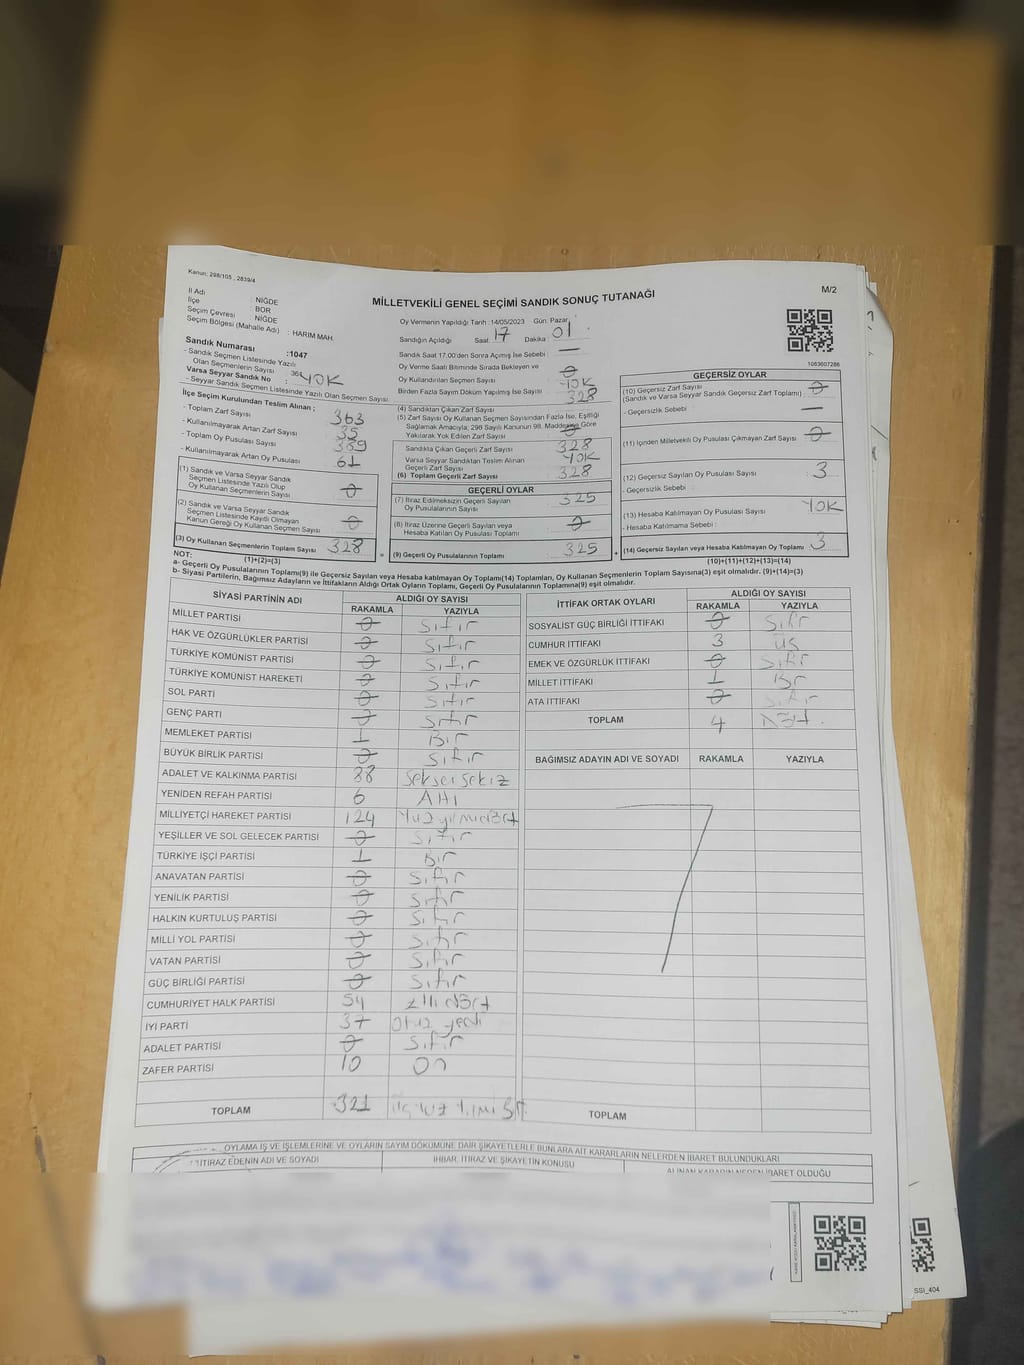 Kanun: 298/105 , 2839/4
M/2
MİLLETVEKİLİ GENEL SEÇİMİ SANDIK SONUÇ TUTANAĞI
İl Adı : NİĞDE
İlçe : BOR
Seçim Çevresi : NİĞDE
Seçim Bölgesi (Mahalle Adı) : HARIM MAH.
Sandık Numarası :1047
- Sandık Seçmen Listesinde Yazılı
Olan Seçmenlerin Sayısı
Varsa Seyyar Sandık No : YOK
- Seyyar Sandık Seçmen Listesinde Yazılı Olan Seçmen Sayısı
İlçe Seçim Kurulundan Teslim Alınan ;
- Toplam Zarf Sayısı 363
- Kullanılmayarak Artan Zarf Sayısı 35
- Toplam Oy Pusulası Sayısı 389
- Kullanılmayarak Artan Oy Pusulası 61
(1) Sandık ve Varsa Seyyar Sandık
Seçmen Listesinde Yazılı Olup
Oy Kullanan Seçmenlerin Sayısı 0
(2) Sandık ve Varsa Seyyar Sandık
Seçmen Listesinde Kayıtlı Olmayan
Kanun Gereği Oy Kullanan Seçmen Sayısı 0
(3) Oy Kullanan Seçmenlerin Toplam Sayısı 328
(1)+(2)=(3)
Oy Vermenin Yapıldığı Tarih :14/05/2023 Gün: Pazar
Sandığın Açıldığı Saat 17 Dakika : 01
Sandık Saat 17.00'den Sonra Açımış İse Sebebi : —
Oy Verme Saati Bitiminde Sırada Bekleyen ve
Oy Kullandırılan Seçmen Sayısı 0
Birden Fazla Sayım Döküm Yapılmış İse Sayısı YOK
(4) Sandıktan Çıkan Zarf Sayısı 328
(5) Zarf Sayısı Oy Kullanan Seçmen Sayısından Fazla İse, Eşitliği
Sağlamak Amacıyla, 298 Sayılı Kanunun 98. Maddesine Göre
Yakılarak Yok Edilen Zarf Sayısı 0
Sandıkta Çıkan Geçerli Zarf Sayısı 328
Varsa Seyyar Sandıktan Teslim Alınan
Geçerli Zarf Sayısı YOK
(6) Toplam Geçerli Zarf Sayısı 328
GEÇERLİ OYLAR
(7) İtiraz Edilmeksizin Geçerli Sayılan
Oy Pusulalarının Sayısı 325
(8) İtiraz Üzerine Geçerli Sayılan veya
Hesaba Katılan Oy Pusulası Toplamı 0
= (9) Geçerli Oy Pusulalarının Toplamı 325
1063607286
GEÇERSİZ OYLAR
(10) Geçersiz Zarf Sayısı
(Sandık ve Varsa Seyyar Sandık Geçersiz Zarf Toplamı) : 0
- Geçersizlik Sebebi : —
(11) İçinden Milletvekili Oy Pusulası Çıkmayan Zarf Sayısı 0
(12) Geçersiz Sayılan Oy Pusulası Sayısı 3
- Geçersizlik Sebebi :
(13) Hesaba Katılmayan Oy Pusulası Sayısı YOK
- Hesaba Katılmama Sebebi :
+ (14) Geçersiz Sayılan veya Hesaba Katılmayan Oy Toplamı 3
(10)+(11)+(12)+(13)=(14)
NOT:
a- Geçerli Oy Pusulalarının Toplamı(9) ile Geçersiz Sayılan veya Hesaba katılmayan Oy Toplamı(14) Toplamları, Oy Kullanan Seçmenlerin Toplam Sayısına(3) eşit olmalıdır. (9)+(14)=(3)
b- Siyasi Partilerin, Bağımsız Adayların ve İttifakların Aldığı Ortak Oyların Toplamı, Geçerli Oy Pusulalarının Toplamına(9) eşit olmalıdır.
SİYASİ PARTİNİN ADI ALDIĞI OY SAYISI
RAKAMLA YAZIYLA
MİLLET PARTİSİ 0 sıfır
HAK VE ÖZGÜRLÜKLER PARTİSİ 0 sıfır
TÜRKİYE KOMÜNİST PARTİSİ 0 sıfır
TÜRKİYE KOMÜNİST HAREKETİ 0 sıfır
SOL PARTİ 0 sıfır
GENÇ PARTİ 0 sıfır
MEMLEKET PARTİSİ 1 Bir
BÜYÜK BİRLİK PARTİSİ 0 sıfır
ADALET VE KALKINMA PARTİSİ 88 seksensekiz
YENİDEN REFAH PARTİSİ 6 Altı
MİLLİYETÇİ HAREKET PARTİSİ 124 Yüzyirmidört
YEŞİLLER VE SOL GELECEK PARTİSİ 0 sıfır
TÜRKİYE İŞÇİ PARTİSİ 1 Bir
ANAVATAN PARTİSİ 0 sıfır
YENİLİK PARTİSİ 0 sıfır
HALKIN KURTULUŞ PARTİSİ 0 sıfır
MİLLİ YOL PARTİSİ 0 sıfır
VATAN PARTİSİ 0 sıfır
GÜÇ BİRLİĞİ PARTİSİ 0 sıfır
CUMHURİYET HALK PARTİSİ 54 Elli dört
İYİ PARTİ 37 otuz yedi
ADALET PARTİSİ 0 sıfır
ZAFER PARTİSİ 10 On
TOPLAM 321 üçyüz yirmi bir
İTTİFAK ORTAK OYLARI ALDIĞI OY SAYISI
RAKAMLA YAZIYLA
SOSYALİST GÜÇ BİRLİĞİ İTTİFAKI 0 sıfır
CUMHUR İTTİFAKI 3 üç
EMEK VE ÖZGÜRLÜK İTTİFAKI 0 sıfır
MİLLET İTTİFAKI 1 Bir
ATA İTTİFAKI 0 sıfır
TOPLAM 4 Dört
BAĞIMSIZ ADAYIN ADI VE SOYADI RAKAMLA YAZIYLA
TOPLAM
OYLAMA İŞ VE İŞLEMLERİNE VE OYLARIN SAYIM DÖKÜMÜNE DAİR ŞİKAYETLERLE BUNLARA AİT KARARLARIN NELERDEN İBARET BULUNDUKLARI
İTİRAZ EDENİN ADI VE SOYADI İHBAR, İTİRAZ VE ŞİKAYETİN KONUSU ALINAN KARARIN NEDEN İBARET OLDUĞU
SSI_404